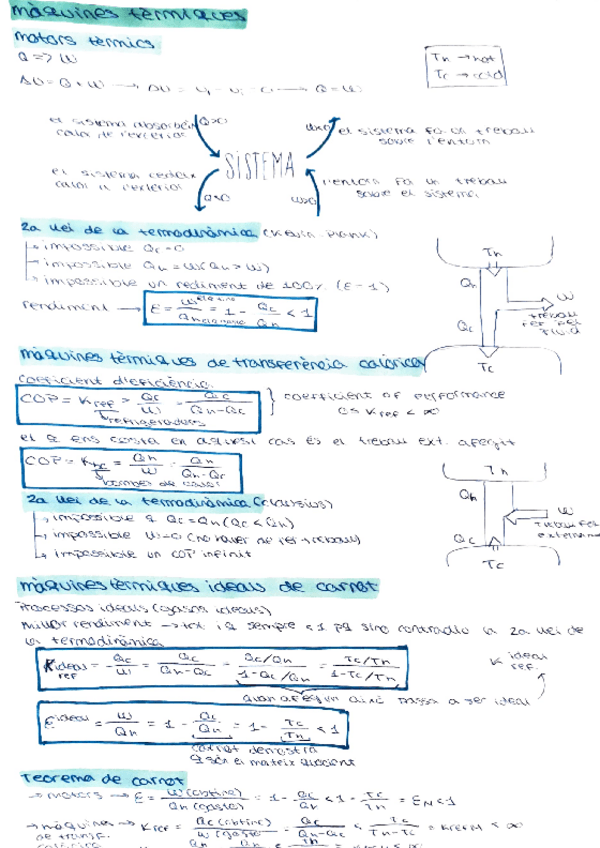 màquines tèrmiques
motors tèrmics
Q => W
Th → hot
Tc → cold
ΔU = Q + W → ΔU = Q = W
el sistema absorbeix calor de l'exterior
Q>0
W<0
el sistema fa un treball sobre l'entorn
SISTEMA
el sistema cedeix calor a l'exterior
Q<0
W>0
l'entorn fa un treball sobre el sistema
2a llei de la termodinàmica (Kelvin Plank)
↳ impossible Qc = 0
↳ impossible Qh = W (Qh > W)
↳ impossible un rediment de 100% (E = 1)
rendiment → E = W / Qh = 1 - Qc / Qh < 1
Th
Qh
W
treball
fluid
Qc
Tc
màquines tèrmiques de transferència calòrica
coeficient d'eficiència
COP = Kref = Qc / W = Qc / Qh-Qc
refrigeradors
coefficient of performance
Kref < ∞
el que ens costa en aquest cas és el treball ext. afegit
COP = Kbc = Qh / W = Qh / Qh-Qc
bombes de calor
Th
Qh
W
treball fet
Qc
Tc
2a llei de la termodinàmica (clausius)
↳ impossible q Qc = Qh (Qc < Qh)
↳ impossible W=0 (no haver de fer treball)
↳ impossible un COP infinit
màquines tèrmiques ideals de carnot
Processos ideals (gasos ideals)
Millor rendiment → tot i q sempre <1 pq sinó contradiu la 2a llei de
la termodinàmica
K ideal ref = - Qc / W = Qc / Qh-Qc = Qc/Qh / 1-Qc/Qh = Tc/Th / 1-Tc/Th
K ideal ref.
passa a ser ideal
E ideal = W / Qh = 1 - Qc / Qh = 1 - Tc / Th < 1
carnot demostra
q són el mateix quocient
Teorema de carnot
→ motors → E = W (obtinc) / Qh (gasto) = 1 - Qc / Qh < 1 - Tc / Th = EM < 1
→ màquines → Kref = Qc (obtinc) / W (gasto) = Qc / Qh-Qc < Tc / Th-Tc = KrefM < ∞
de transf.
calòrica